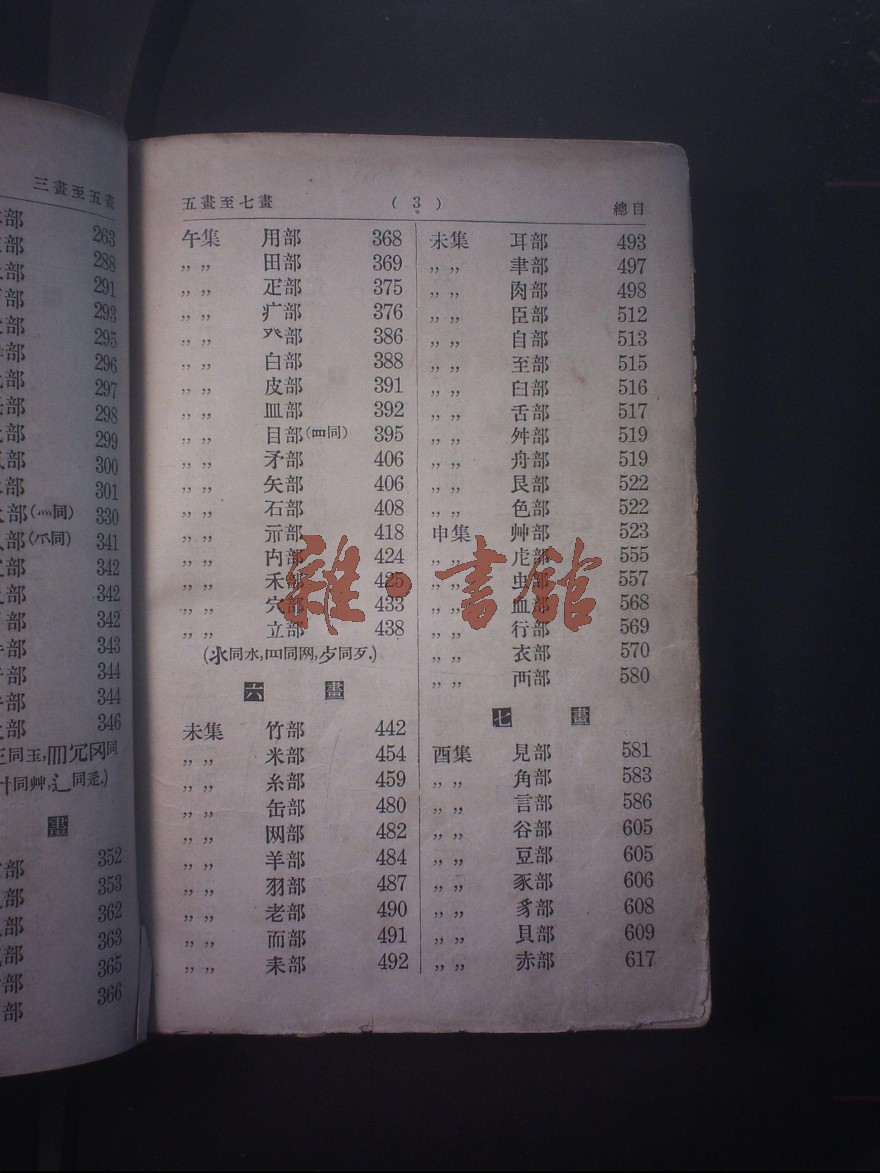 三畫至五畫
部 263
部 288
部 291
部 293
部 295
部 296
部 297
部 298
部 299
部 300
部 301
部(灬同) 330
部(爫同) 341
部 342
部 342
部 342
部 343
部 344
部 344
部 346
同玉,冂冗冈同
同艸,辶同辵.)
畫
部 352
部 353
部 362
部 363
部 365
部 366
五畫至七畫 ( 3 ) 總目
午集 用部 368
,, ,, 田部 369
,, ,, 疋部 375
,, ,, 疒部 376
,, ,, 癶部 386
,, ,, 白部 388
,, ,, 皮部 391
,, ,, 皿部 392
,, ,, 目部(罒同) 395
,, ,, 矛部 406
,, ,, 矢部 406
,, ,, 石部 408
,, ,, 示部 418
,, ,, 禸部 424
,, ,, 禾部 425
,, ,, 穴部 433
,, ,, 立部 438
(氺同水,罒同网,歺同歹.)
六畫
未集 竹部 442
,, ,, 米部 454
,, ,, 糸部 459
,, ,, 缶部 480
,, ,, 网部 482
,, ,, 羊部 484
,, ,, 羽部 487
,, ,, 老部 490
,, ,, 而部 491
,, ,, 耒部 492
未集 耳部 493
,, ,, 聿部 497
,, ,, 肉部 498
,, ,, 臣部 512
,, ,, 自部 513
,, ,, 至部 515
,, ,, 臼部 516
,, ,, 舌部 517
,, ,, 舛部 519
,, ,, 舟部 519
,, ,, 艮部 522
,, ,, 色部 522
申集 艸部 523
,, ,, 虍部 555
,, ,, 虫部 557
,, ,, 血部 568
,, ,, 行部 569
,, ,, 衣部 570
,, ,, 襾部 580
七畫
酉集 見部 581
,, ,, 角部 583
,, ,, 言部 586
,, ,, 谷部 605
,, ,, 豆部 605
,, ,, 豕部 606
,, ,, 豸部 608
,, ,, 貝部 609
,, ,, 赤部 617
雜·書館